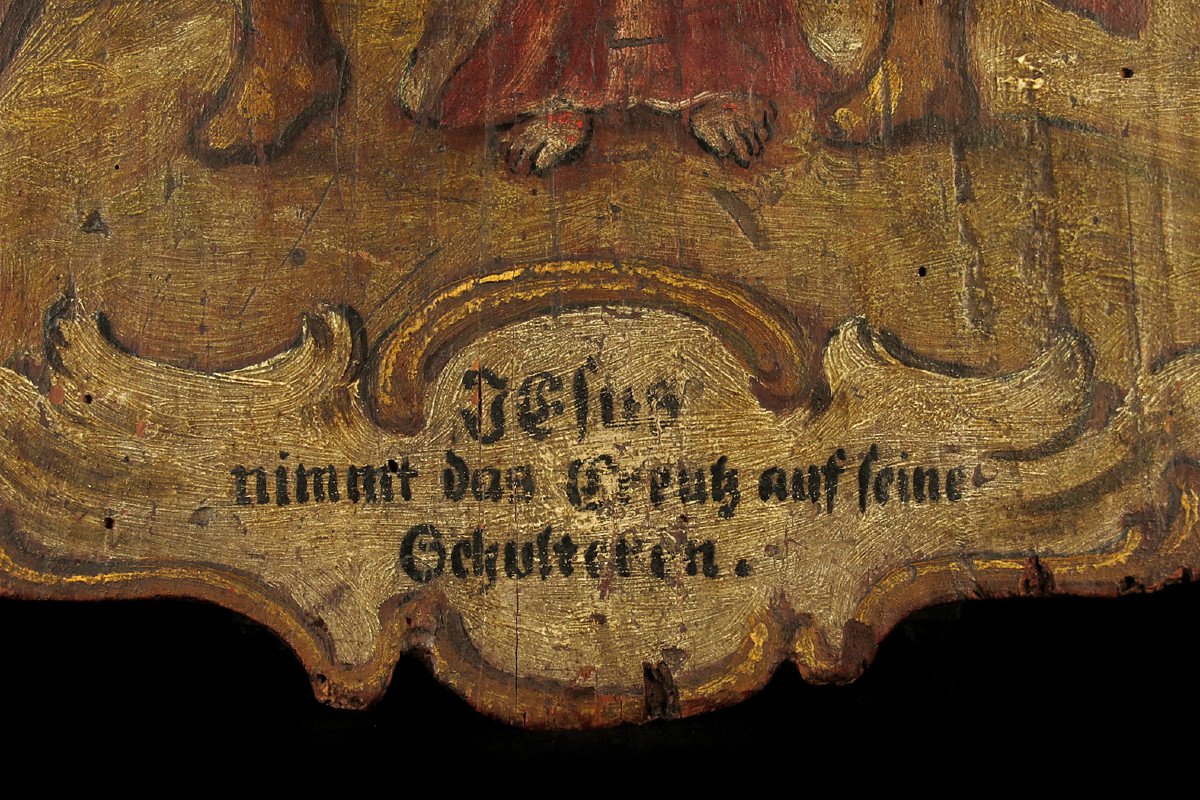 JEsus
nimmt das Creutz auf seine
Schulteren.